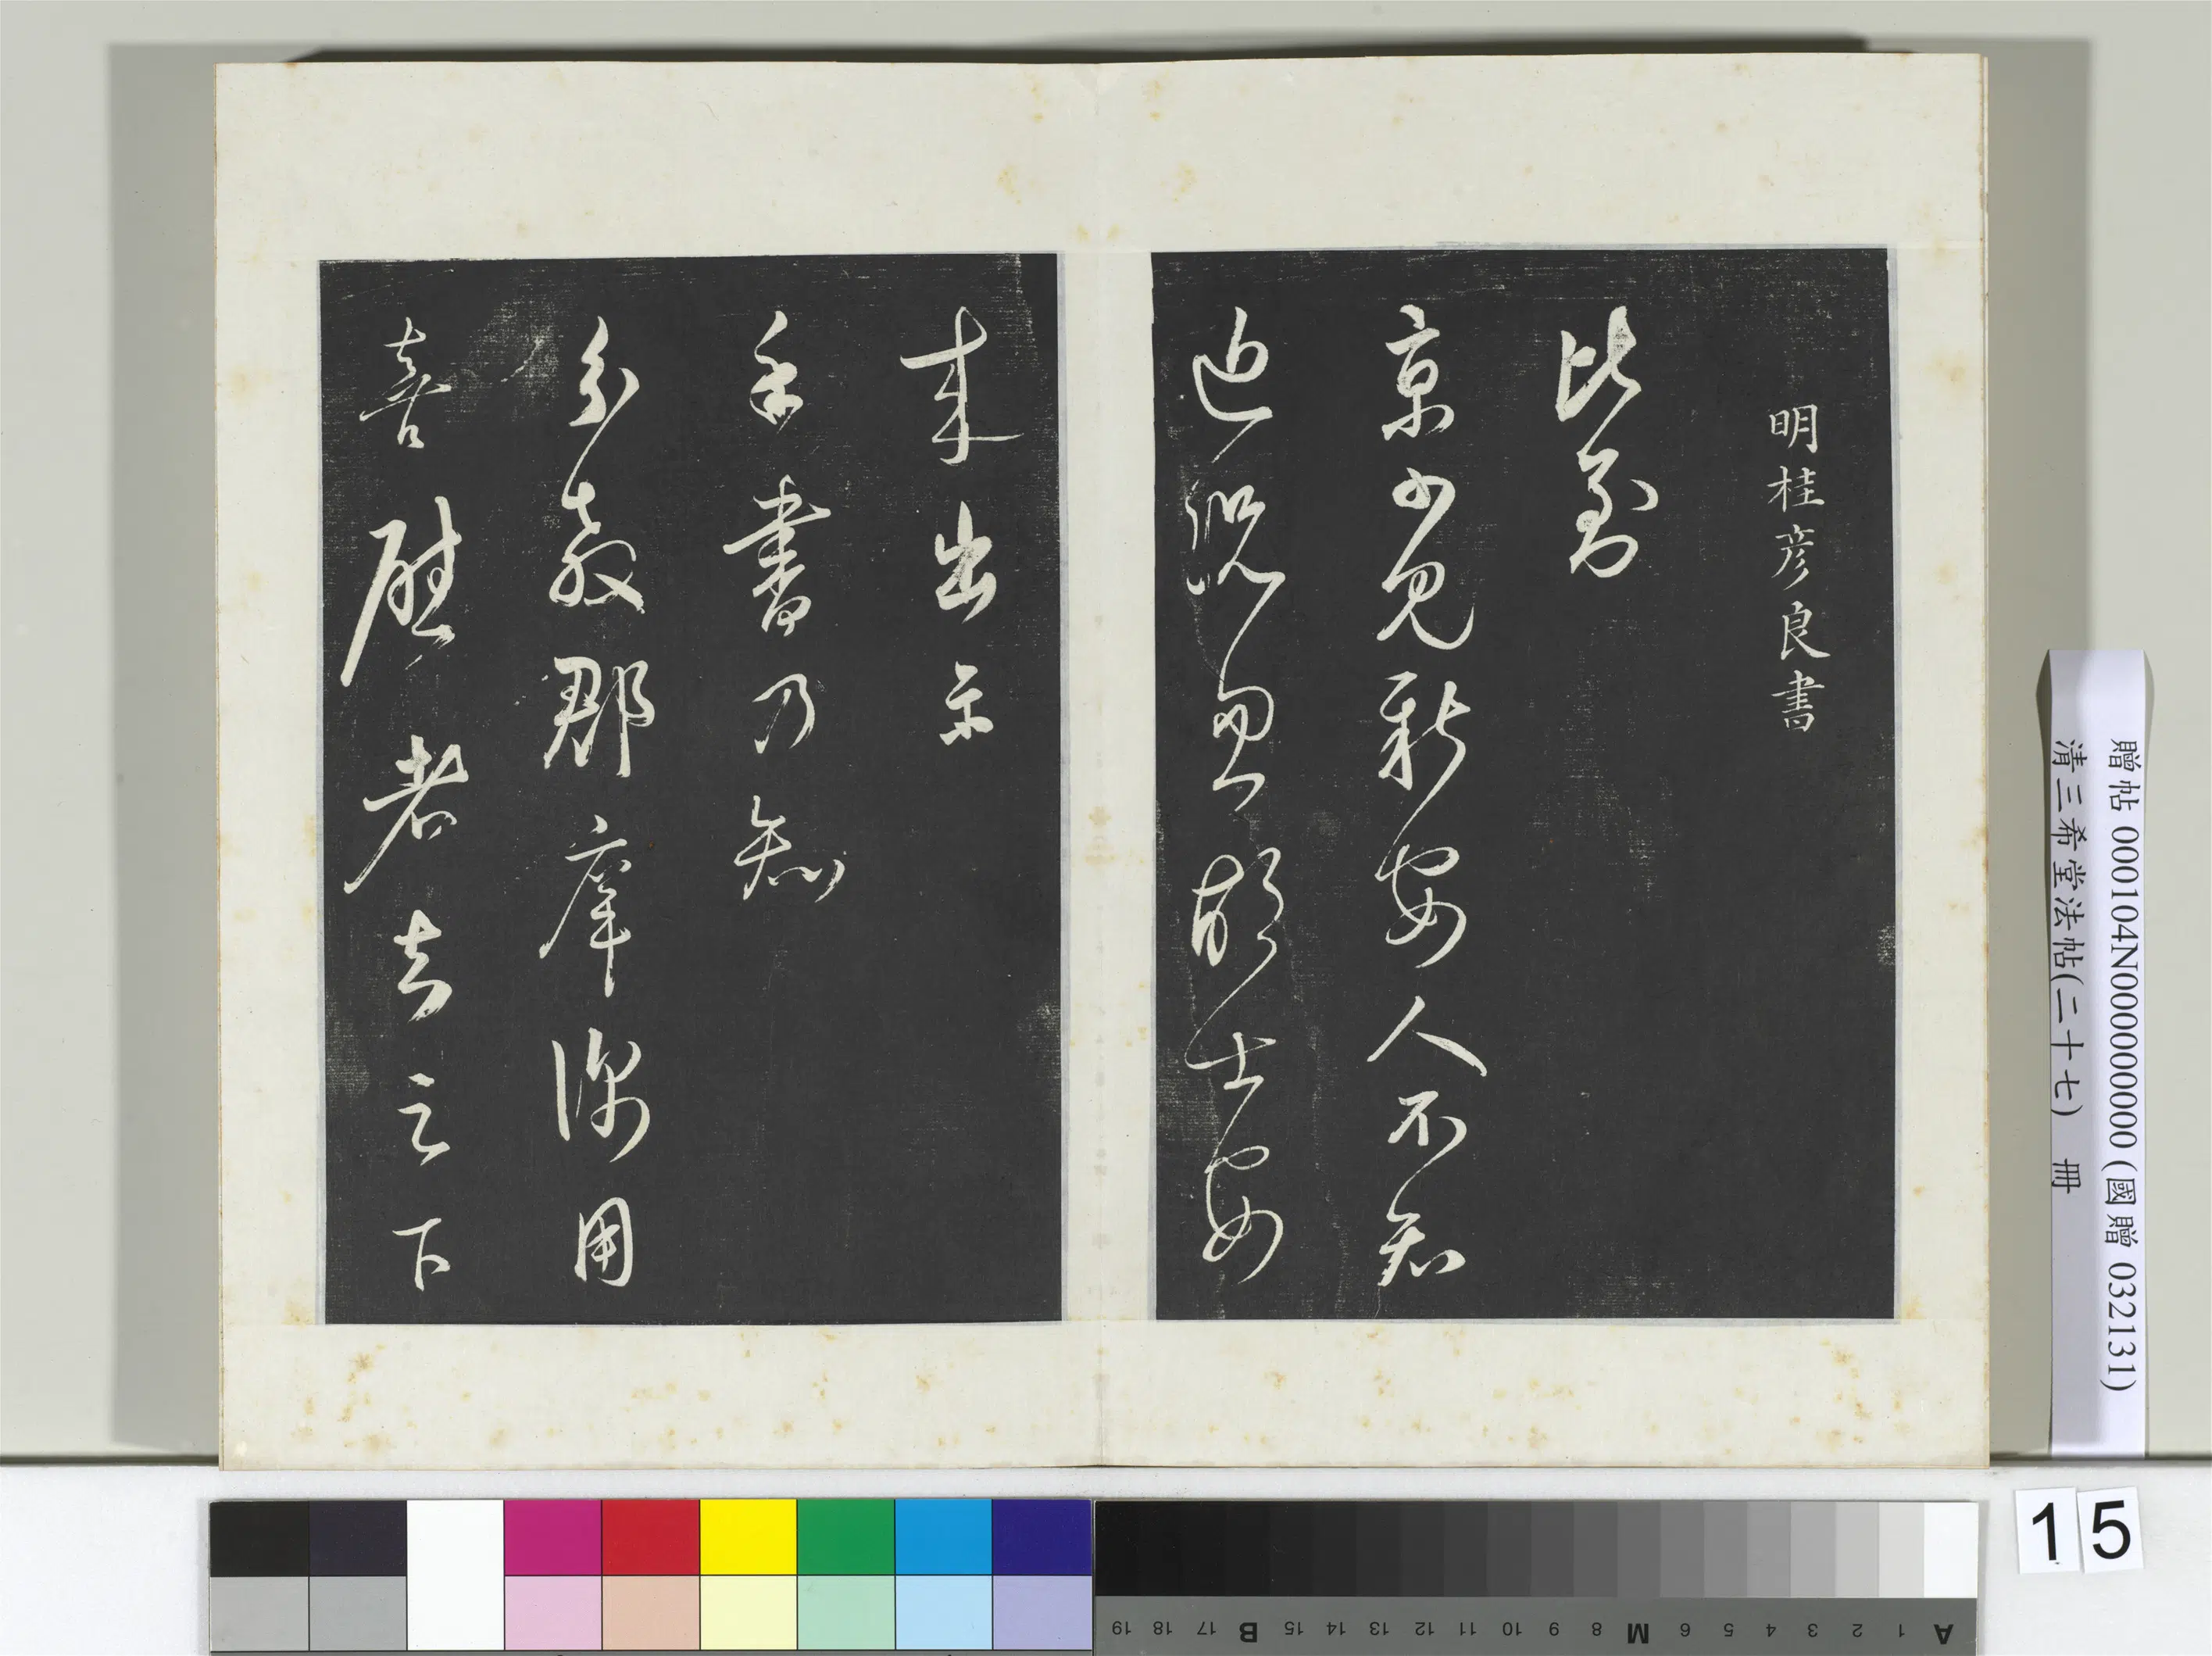 明桂彥良書
比到
京少見新安人不知
近況忽胡士安
來出示
手書乃知
分教郡庠深用
喜慰者去之下
贈帖 000104N000000000 (國贈 032131)
清三希堂法帖(二十七) 冊
15
A 1 2 3 4 5 6 M 8 9 10 11 12 13 14 15 B 17 18 19